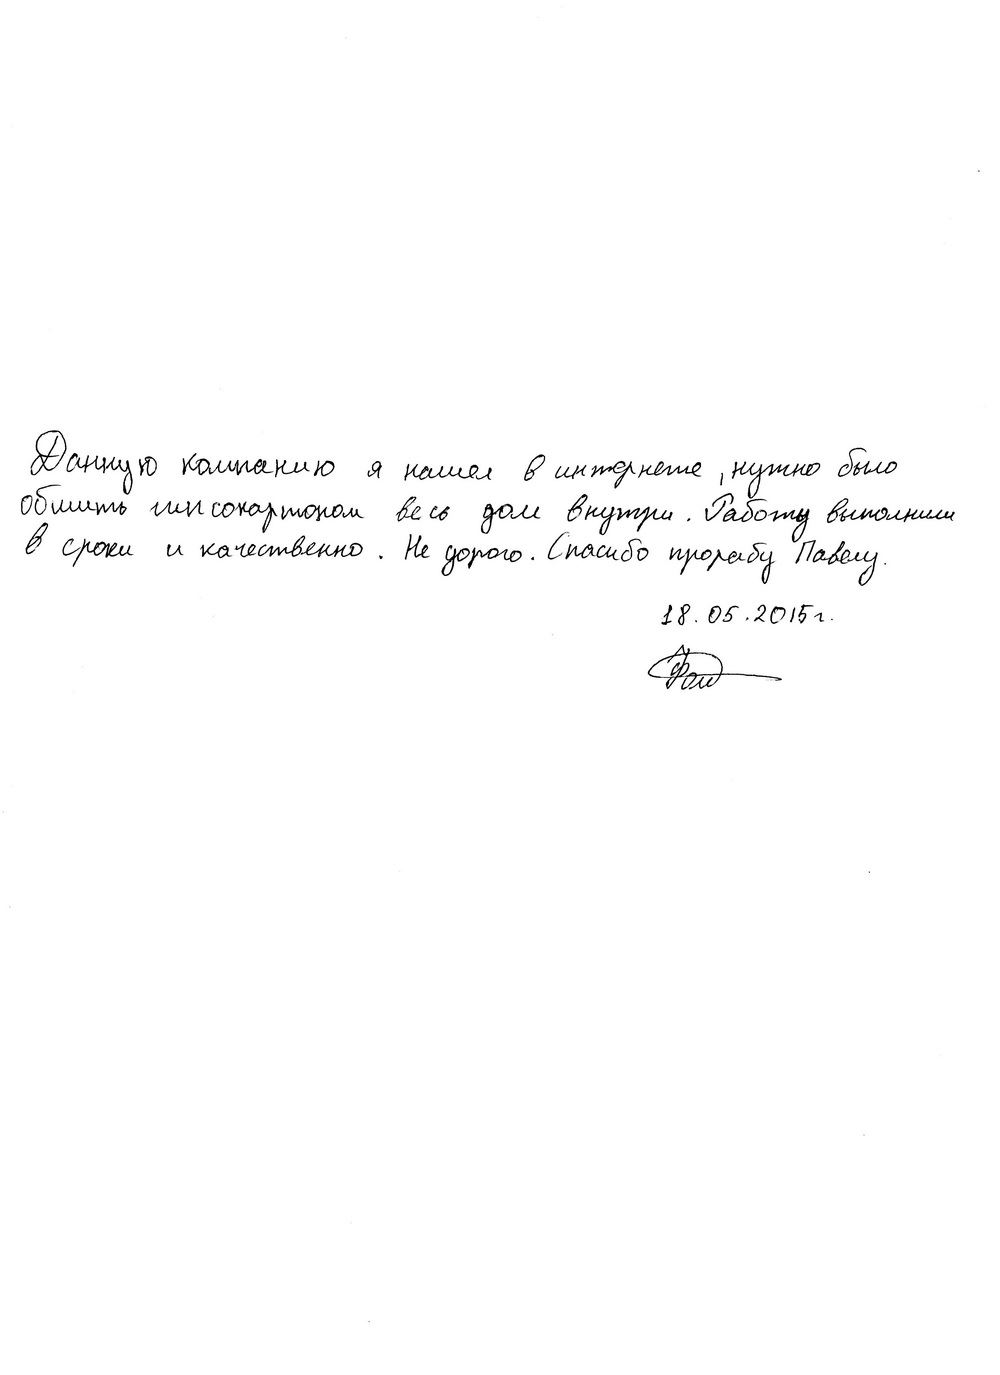 Данную компанию я нашел в интернете, нужно было
обшить гипсокартоном весь дом внутри. Работу выполнили
в сроки и качественно. Не дорого. Спасибо прорабу Павелу.
18.05.2015г.